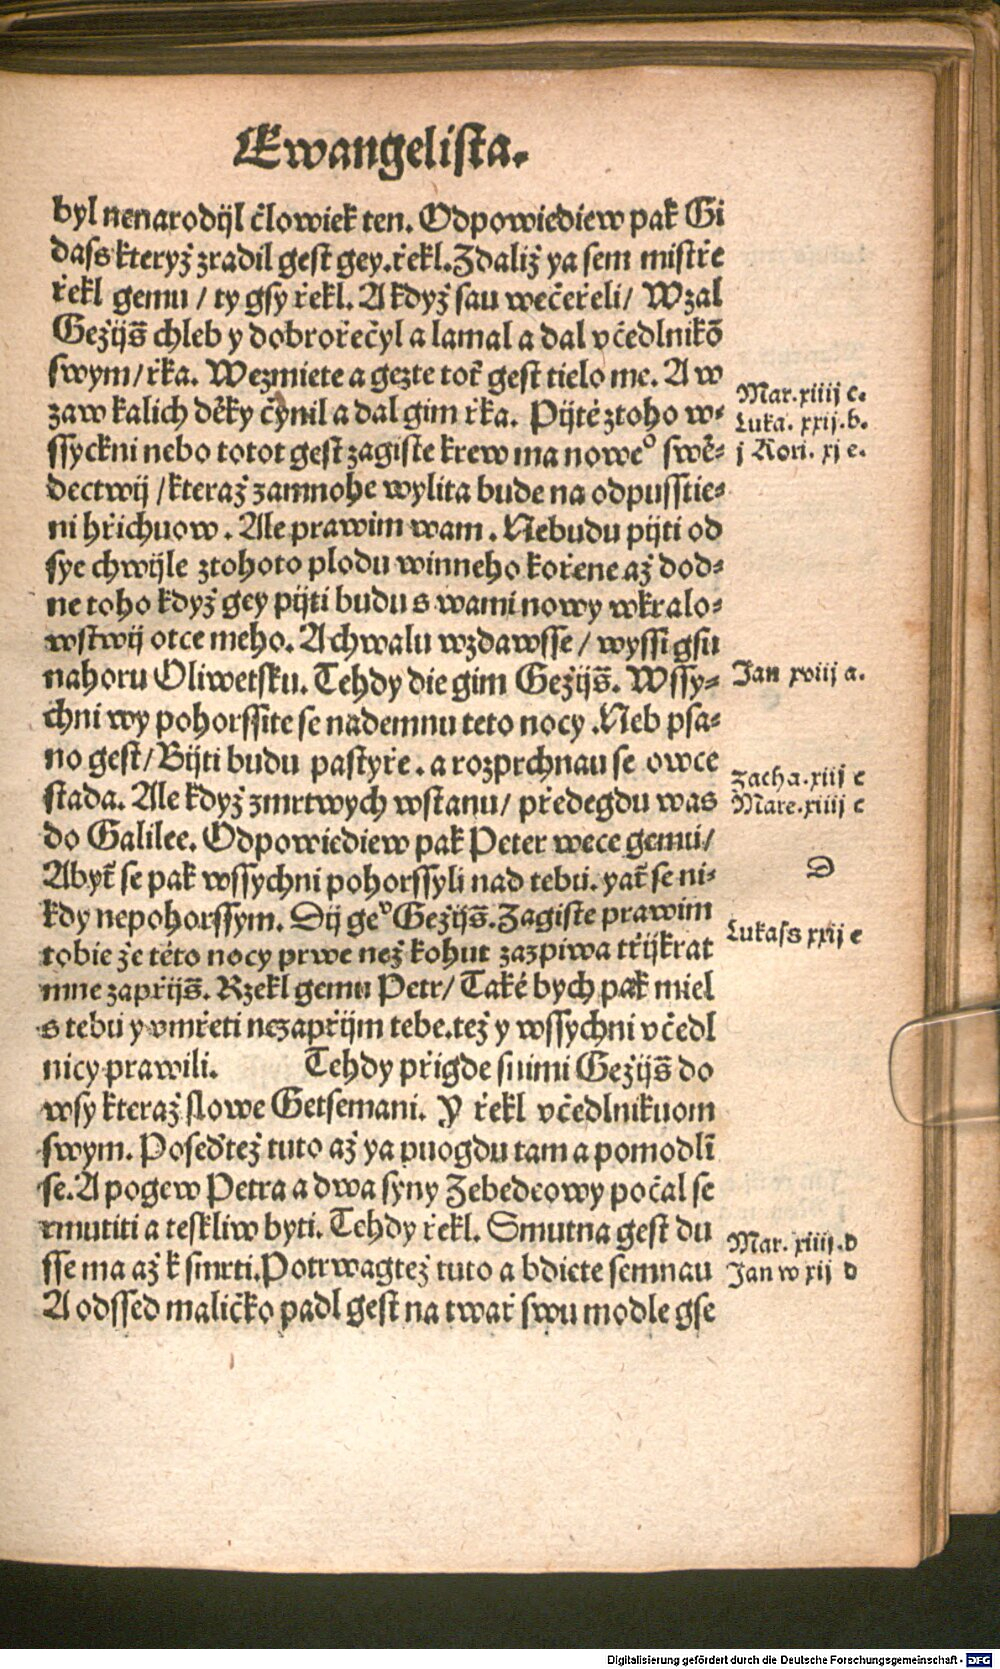 Ewangelista.
byl nenarodijl člowiek ten. Odpowiediew pak Gi
dass kteryž zradil gest gey. řekl. Zdaliž ya sem mistře
řekl gemu / ty gsy řekl. A když sau wečeřeli / Wzal
Gežijs̃ chleb y dobrořečyl a lamal a dal včedlnikõ
swym / řka. Wezmiete a gezte toť gest tielo me. A w
zaw kalich děky čynil a dal gim řka. Pijtě ztoho w-
ssyckni nebo totot gest zagiste krew ma noweº swě-
dectwij / kteraž zamnohe wylita bude na odpusstie-
ni hřichuow. Ale prawim wam. Nebudu pijti od
sye chwijle ztohoto plodu winneho kořene až dod-
ne toho když gey pijti budu s wami nowy wkralo-
wstwij otce meho. A chwalu wzdawsse / wyssi gsu
nahoru Oliwetsku. Tehdy die gim Gežijs̃. Wssy-
chni wy pohorssite se nademnu teto nocy. Neb psa-
no gest / Bijti budu pastyře. a rozprchnau se owce
stada. Ale když zmrtwych wstanu / předegdu was
do Galilee. Odpowiediew pak Peter wece gemu /
Abyť se pak wssychni pohorssyli nad tebu. yať se ni-
kdy nepohorssym. Dij geº Gežijs̃. Zagiste prawim
tobie že této nocy prwe než kohut zazpiwa třijkrat
mne zapřijs̃. Rzekl gemu Petr / Také bych pak miel
s tebu y vmřeti nezapřijm tebe. tež y wssychni včedl
nicy prawili. Tehdy přigde snimi Gežijs̃ do
wsy kteraž slowe Getsemani. Y řekl včedlnikuom
swym. Poseďtež tuto až ya puogdu tam a pomodlĩ
se. A pogew Petra a dwa syny Zebedeowy počal se
rmutiti a teskliw byti. Tehdy řekl. Smutna gest du
sse ma až k smrti. Potrwagtež tuto a bdiete semnau
A odssed maličko padl gest na twař swu modle gse
Mar. xiiij c.
Luka. xxij. b.
j Kori. xj e.
Jan xviij a.
zacha. xiij c
Mare. xiiij c
D
Lukass xxij e
Mar. xiiij. d
Jan w xij d
Digitalisierung gefördert durch die Deutsche Forschungsgemeinschaft - DFG